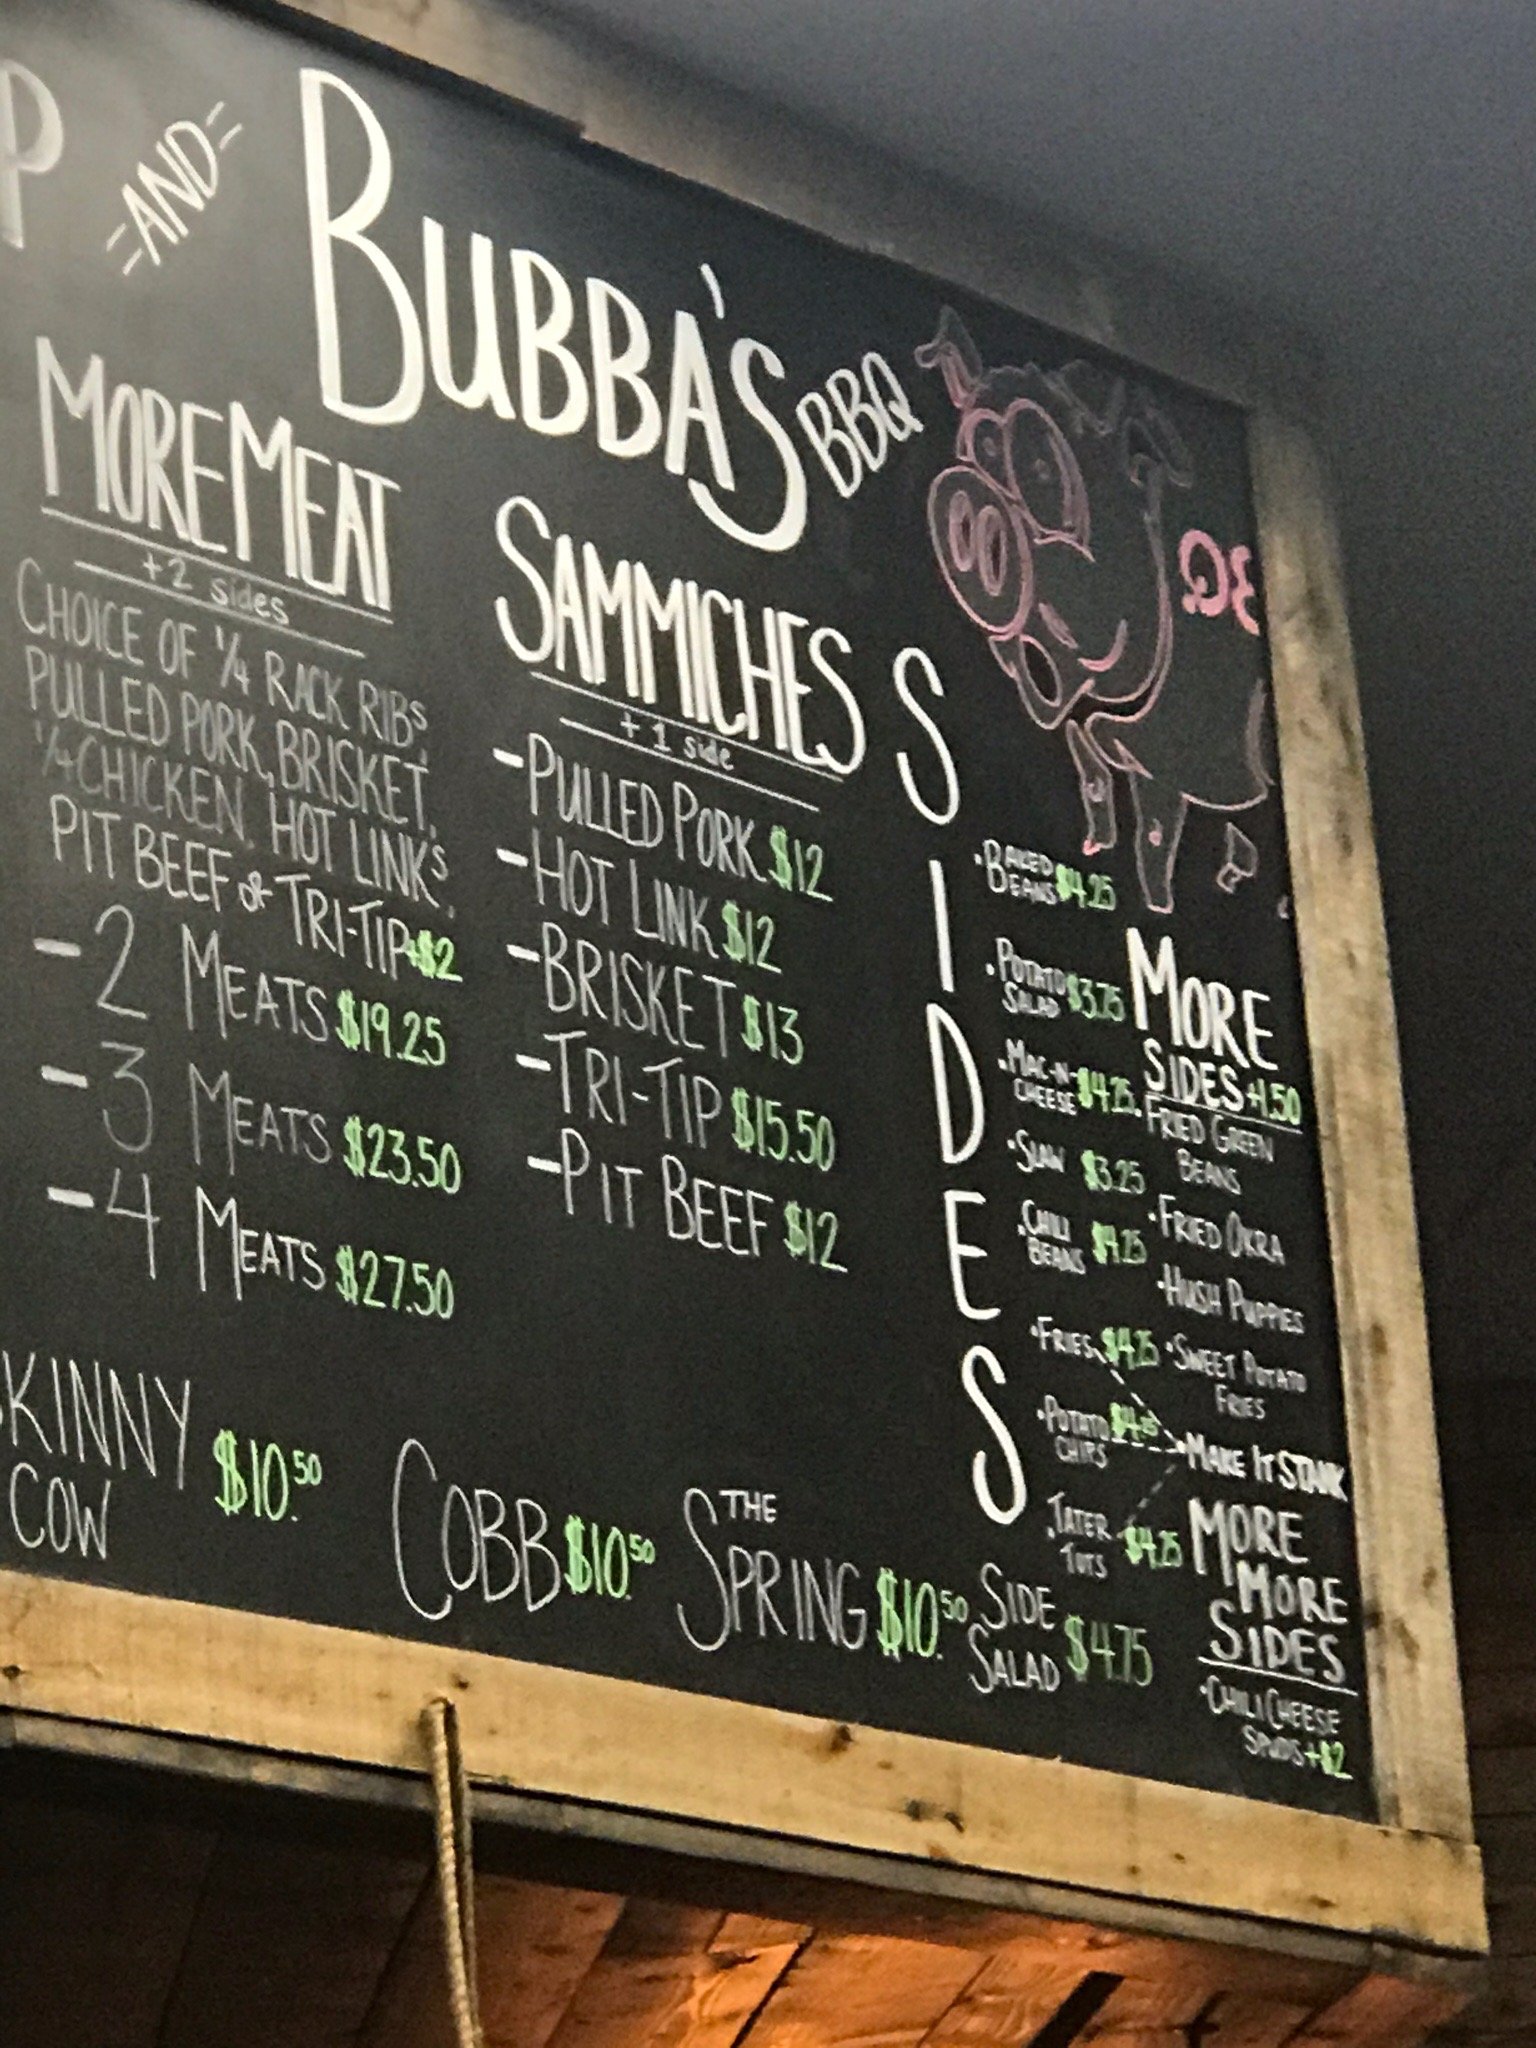 P =AND= BUBBA'S BBQ
MORE MEAT
+2 sides
CHOICE OF 1/4 RACK RIBS,
PULLED PORK, BRISKET,
1/4 CHICKEN, HOT LINKS,
PIT BEEF or TRI-TIP +$2
- 2 MEATS $19.25
- 3 MEATS $23.50
- 4 MEATS $27.50
SAMMICHES
+ 1 side
- PULLED PORK $12
- HOT LINK $12
- BRISKET $13
- TRI-TIP $15.50
- PIT BEEF $12
SIDES
• BAKED
BEANS $4.25
• POTATO
SALAD $3.75
• MAC-N-
CHEESE $4.25
• SLAW $3.25
• CHILI
BEANS $4.25
• FRIES $4.25
• POTATO
CHIPS
• TATER
TOTS $4.25
MORE
SIDES +1.50
• FRIED GREEN
BEANS
• FRIED OKRA
• HUSH PUPPIES
• SWEET POTATO
FRIES
• MAKE IT STANK
MORE
MORE
SIDES
• CHILI CHEESE
SPUDS +$2
SKINNY
COW $10.50
COBB $10.50
THE
SPRING $10.50
SIDE
SALAD $4.75